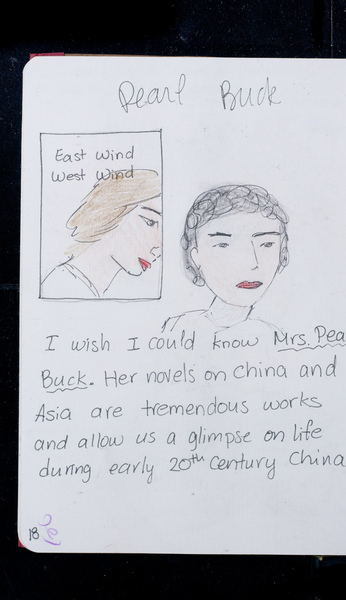 Pearl Buck
East Wind
West Wind
I wish I could know Mrs. Pea
Buck. Her novels on China and
Asia are tremendous works
and allow us a glimpse on life
during early 20th Century China
18